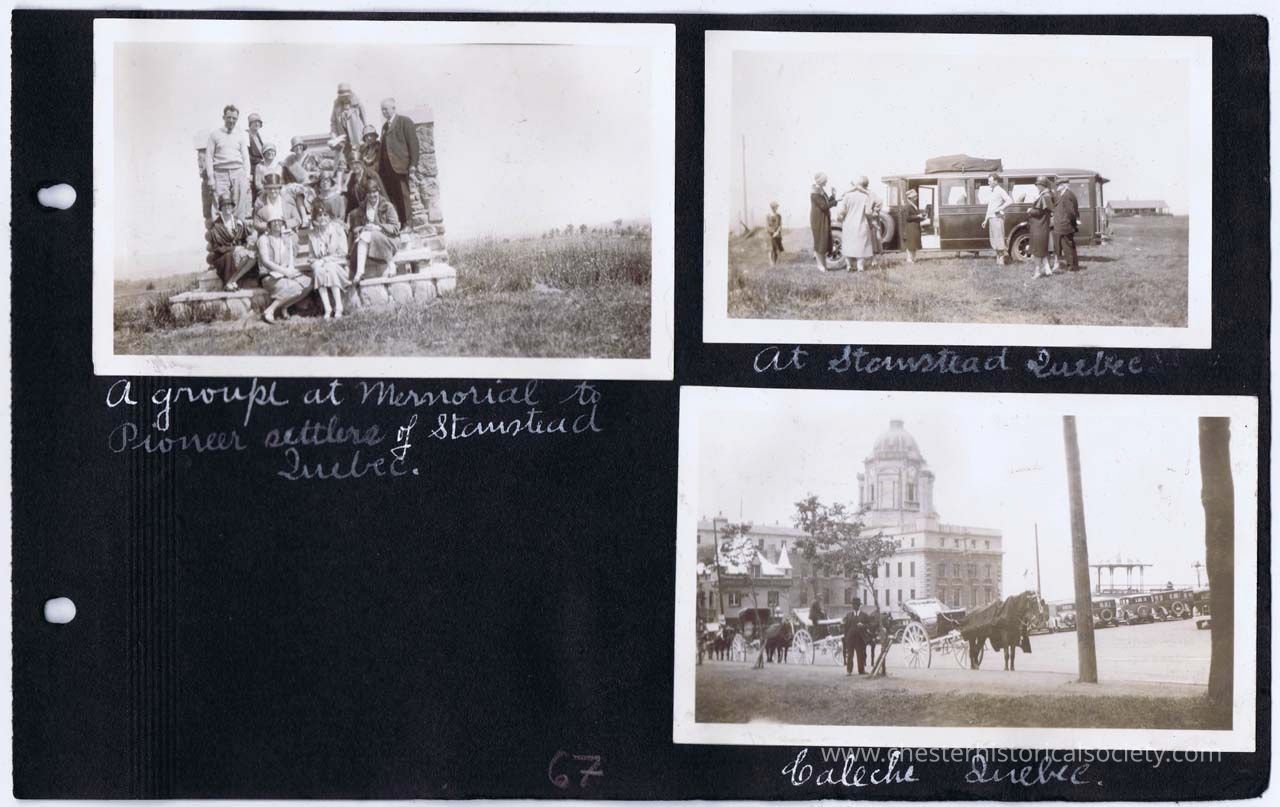 A groupe at Memorial to
Pioneer settlers of Stanstead
Quebec.
At Stanstead Quebec
www.chesterhistoricalsociety.com
Caleche Quebec.
67